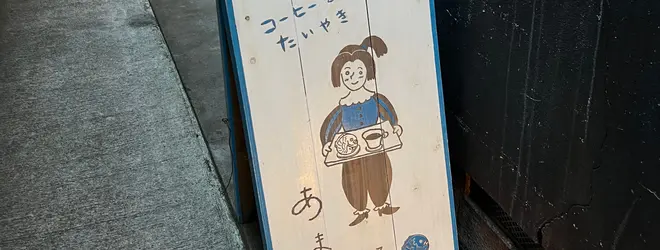 コーヒーと
たいやき
あ
ま